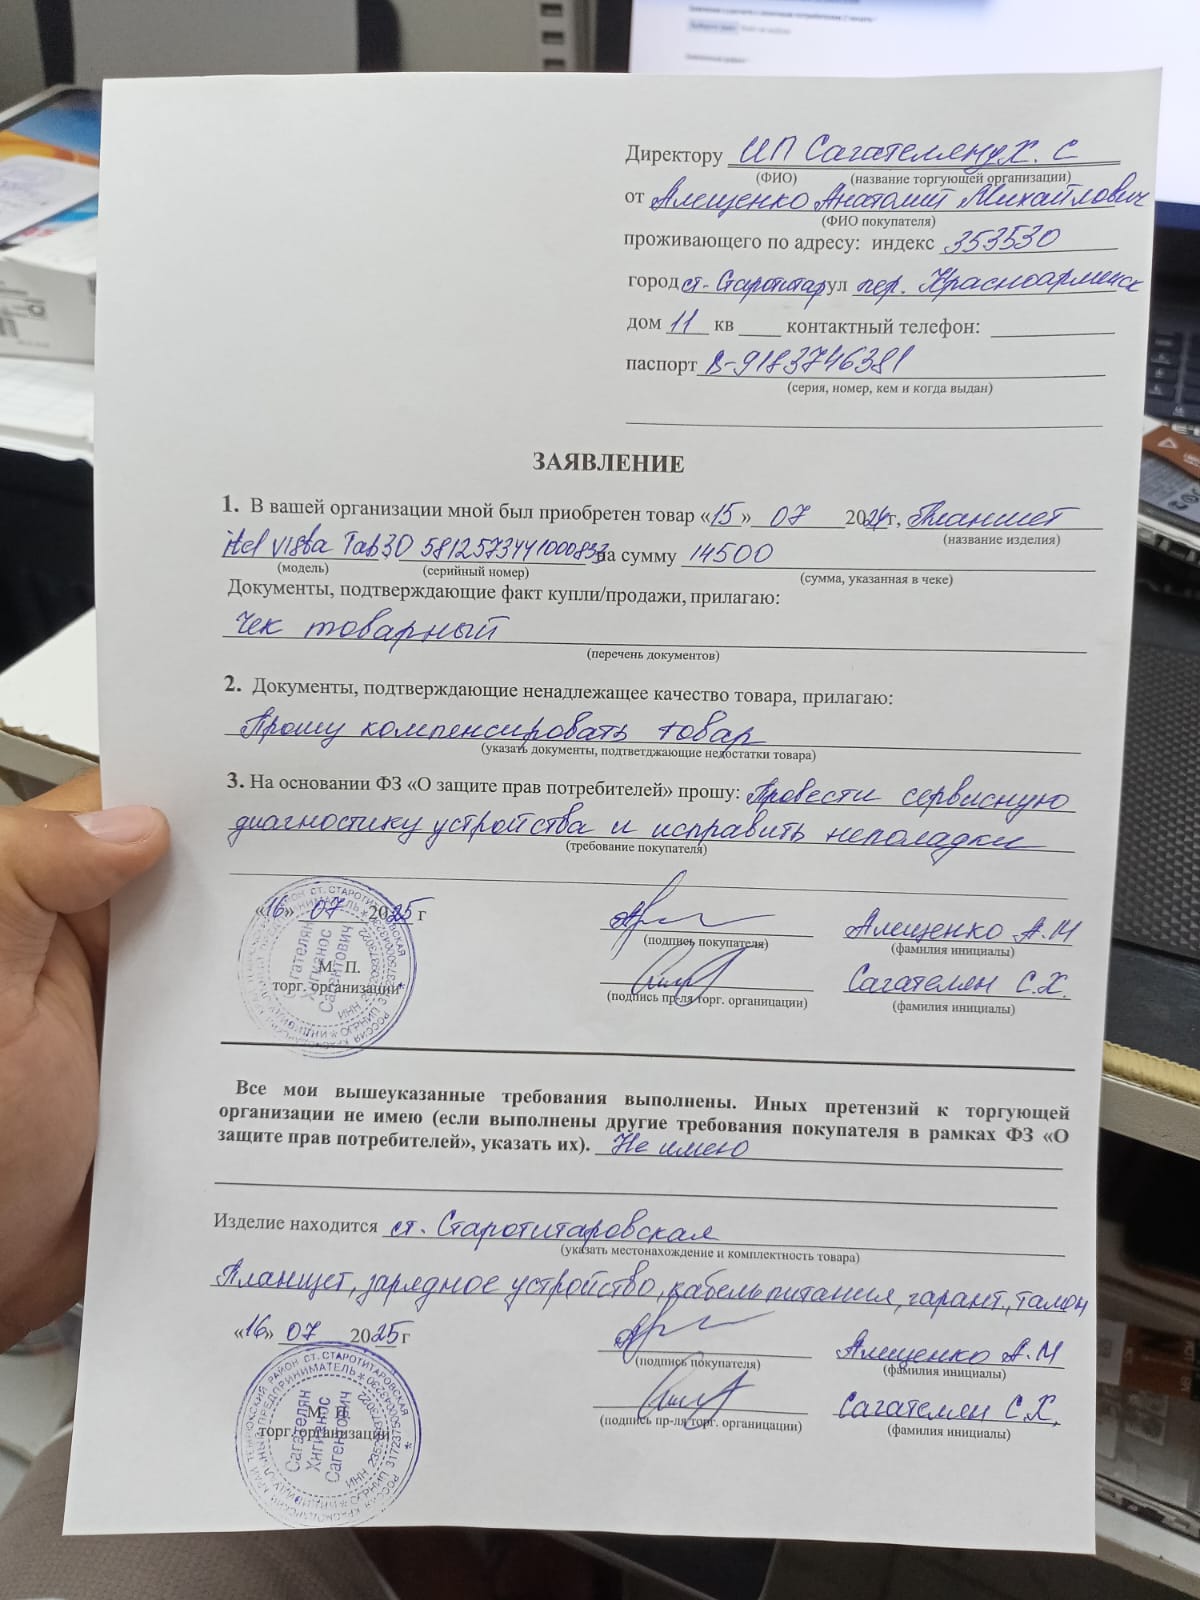 Директору ИП Сагателяну Х. С
(ФИО) (название торгующей организации)
от Алещенко Анатолий Михайлович
(ФИО покупателя)
проживающего по адресу: индекс 353530
город ст. Старотитар ул пер. Красноармейск
дом 11 кв ____ контактный телефон:
паспорт 8-9183746381
(серия, номер, кем и когда выдан)
ЗАЯВЛЕНИЕ
1. В вашей организации мной был приобретен товар «15» 07 2024г, планшет
(название изделия)
itel Vista Tab30 5812573441000833 на сумму 14500
(модель) (серийный номер) (сумма, указанная в чеке)
Документы, подтверждающие факт купли/продажи, прилагаю:
Чек товарный
(перечень документов)
2. Документы, подтверждающие ненадлежащее качество товара, прилагаю:
Прошу компенсировать товар
(указать документы, подтветджающие недостатки товара)
3. На основании ФЗ «О защите прав потребителей» прошу: Провести сервисную
диагностику устройства и исправить неполадки
(требование покупателя)
«16» 07 2025 г
Алещенко А.М
(подпись покупателя) (фамилия инициалы)
М. П.
торг. организации
Сагателян С.Х.
(подпись пр-ля торг. органицации) (фамилия инициалы)
Сагателян
Хнгианос
Сагентович
Все мои вышеуказанные требования выполнены. Иных претензий к торгующей
организации не имею (если выполнены другие требования покупателя в рамках ФЗ «О
защите прав потребителей», указать их). Не имею
Изделие находится ст. Старотитаровская
(указать местонахождение и комплектность товара)
Планшет, зарядное устройство, кабель питания, гарант., талон
«16» 07 2025 г
Алещенко А.М
(подпись покупателя) (фамилия инициалы)
М. П.
торг. организации
Сагателян С.Х.
(подпись пр-ля торг. органицации) (фамилия инициалы)
Сагателян
Хнгианос
Сагентович